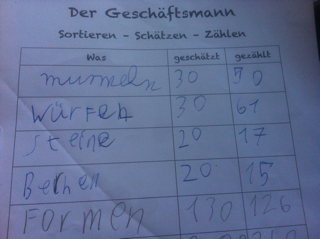 Der Geschäftsmann
Sortieren - Schätzen - Zählen
Was geschützt gezählt
murmeln 30
Würfel 30 61
Steine 20 17
20 15
FORMEN 130 126